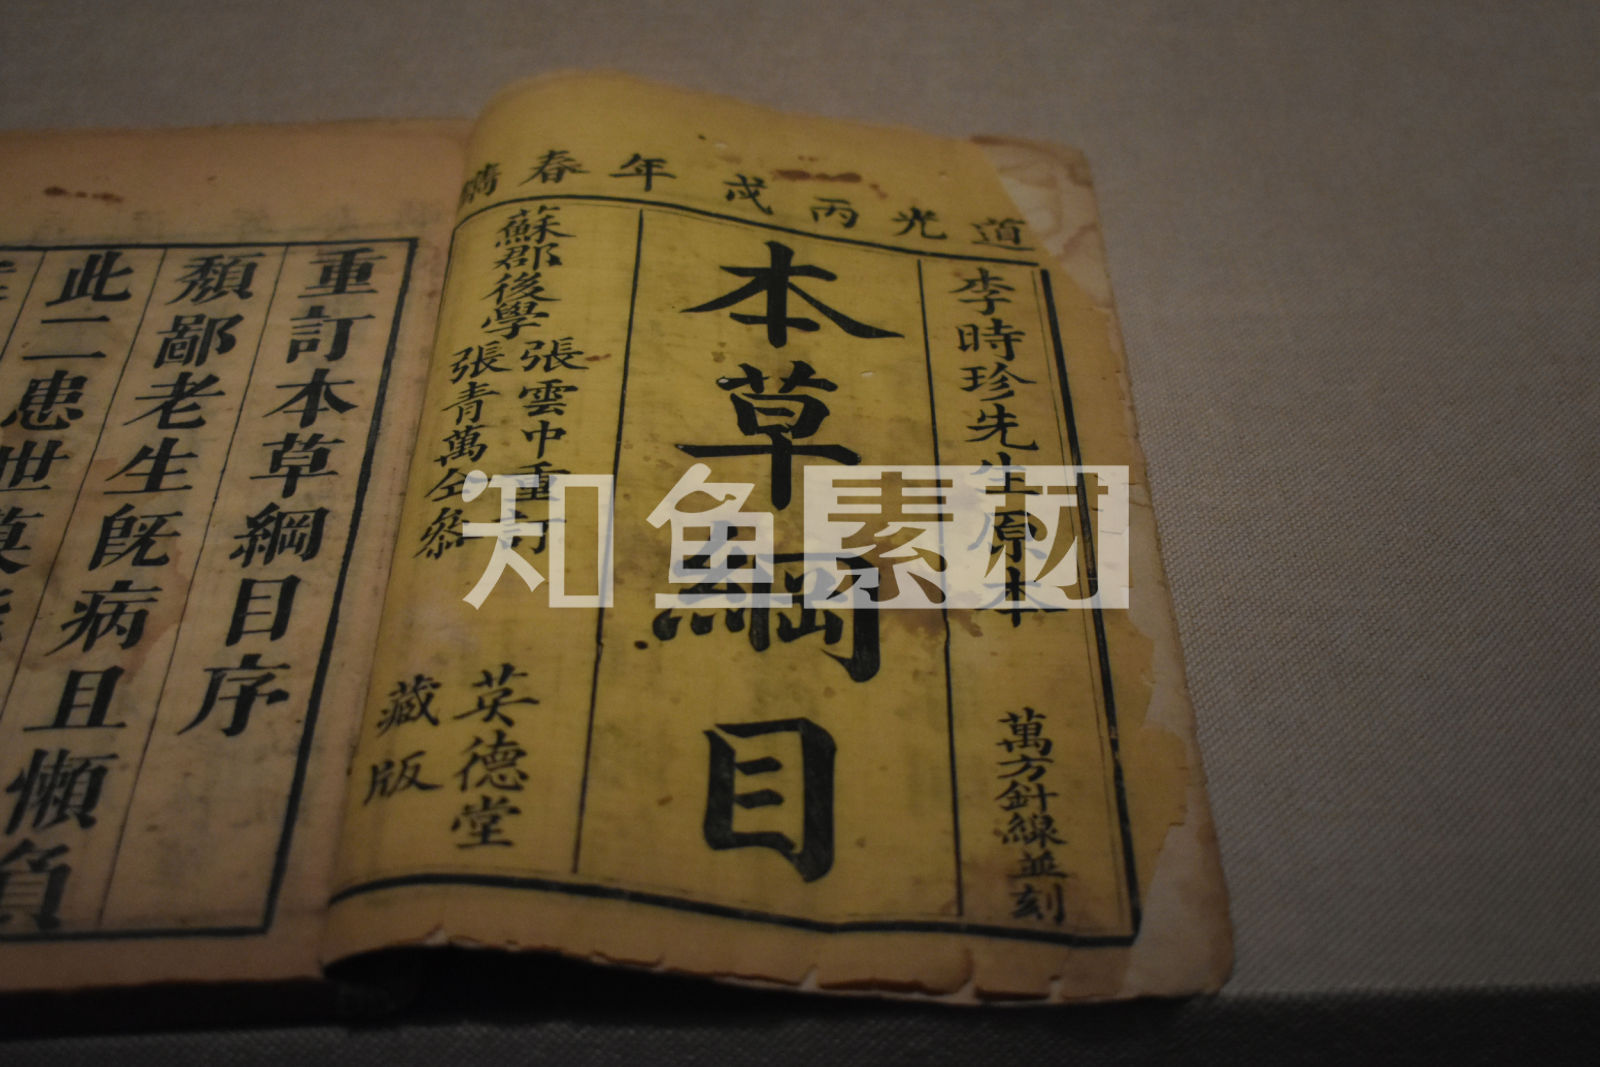 道光丙戌年春鐫
李時珍先生原本
萬方針線並刻
本草綱目
蘇郡後學
張雲中重訂
張青萬仝參
英德堂
藏版
重訂本草綱目序
頽鄙老生旣病且懶
此二患世莫
負
知鱼素材